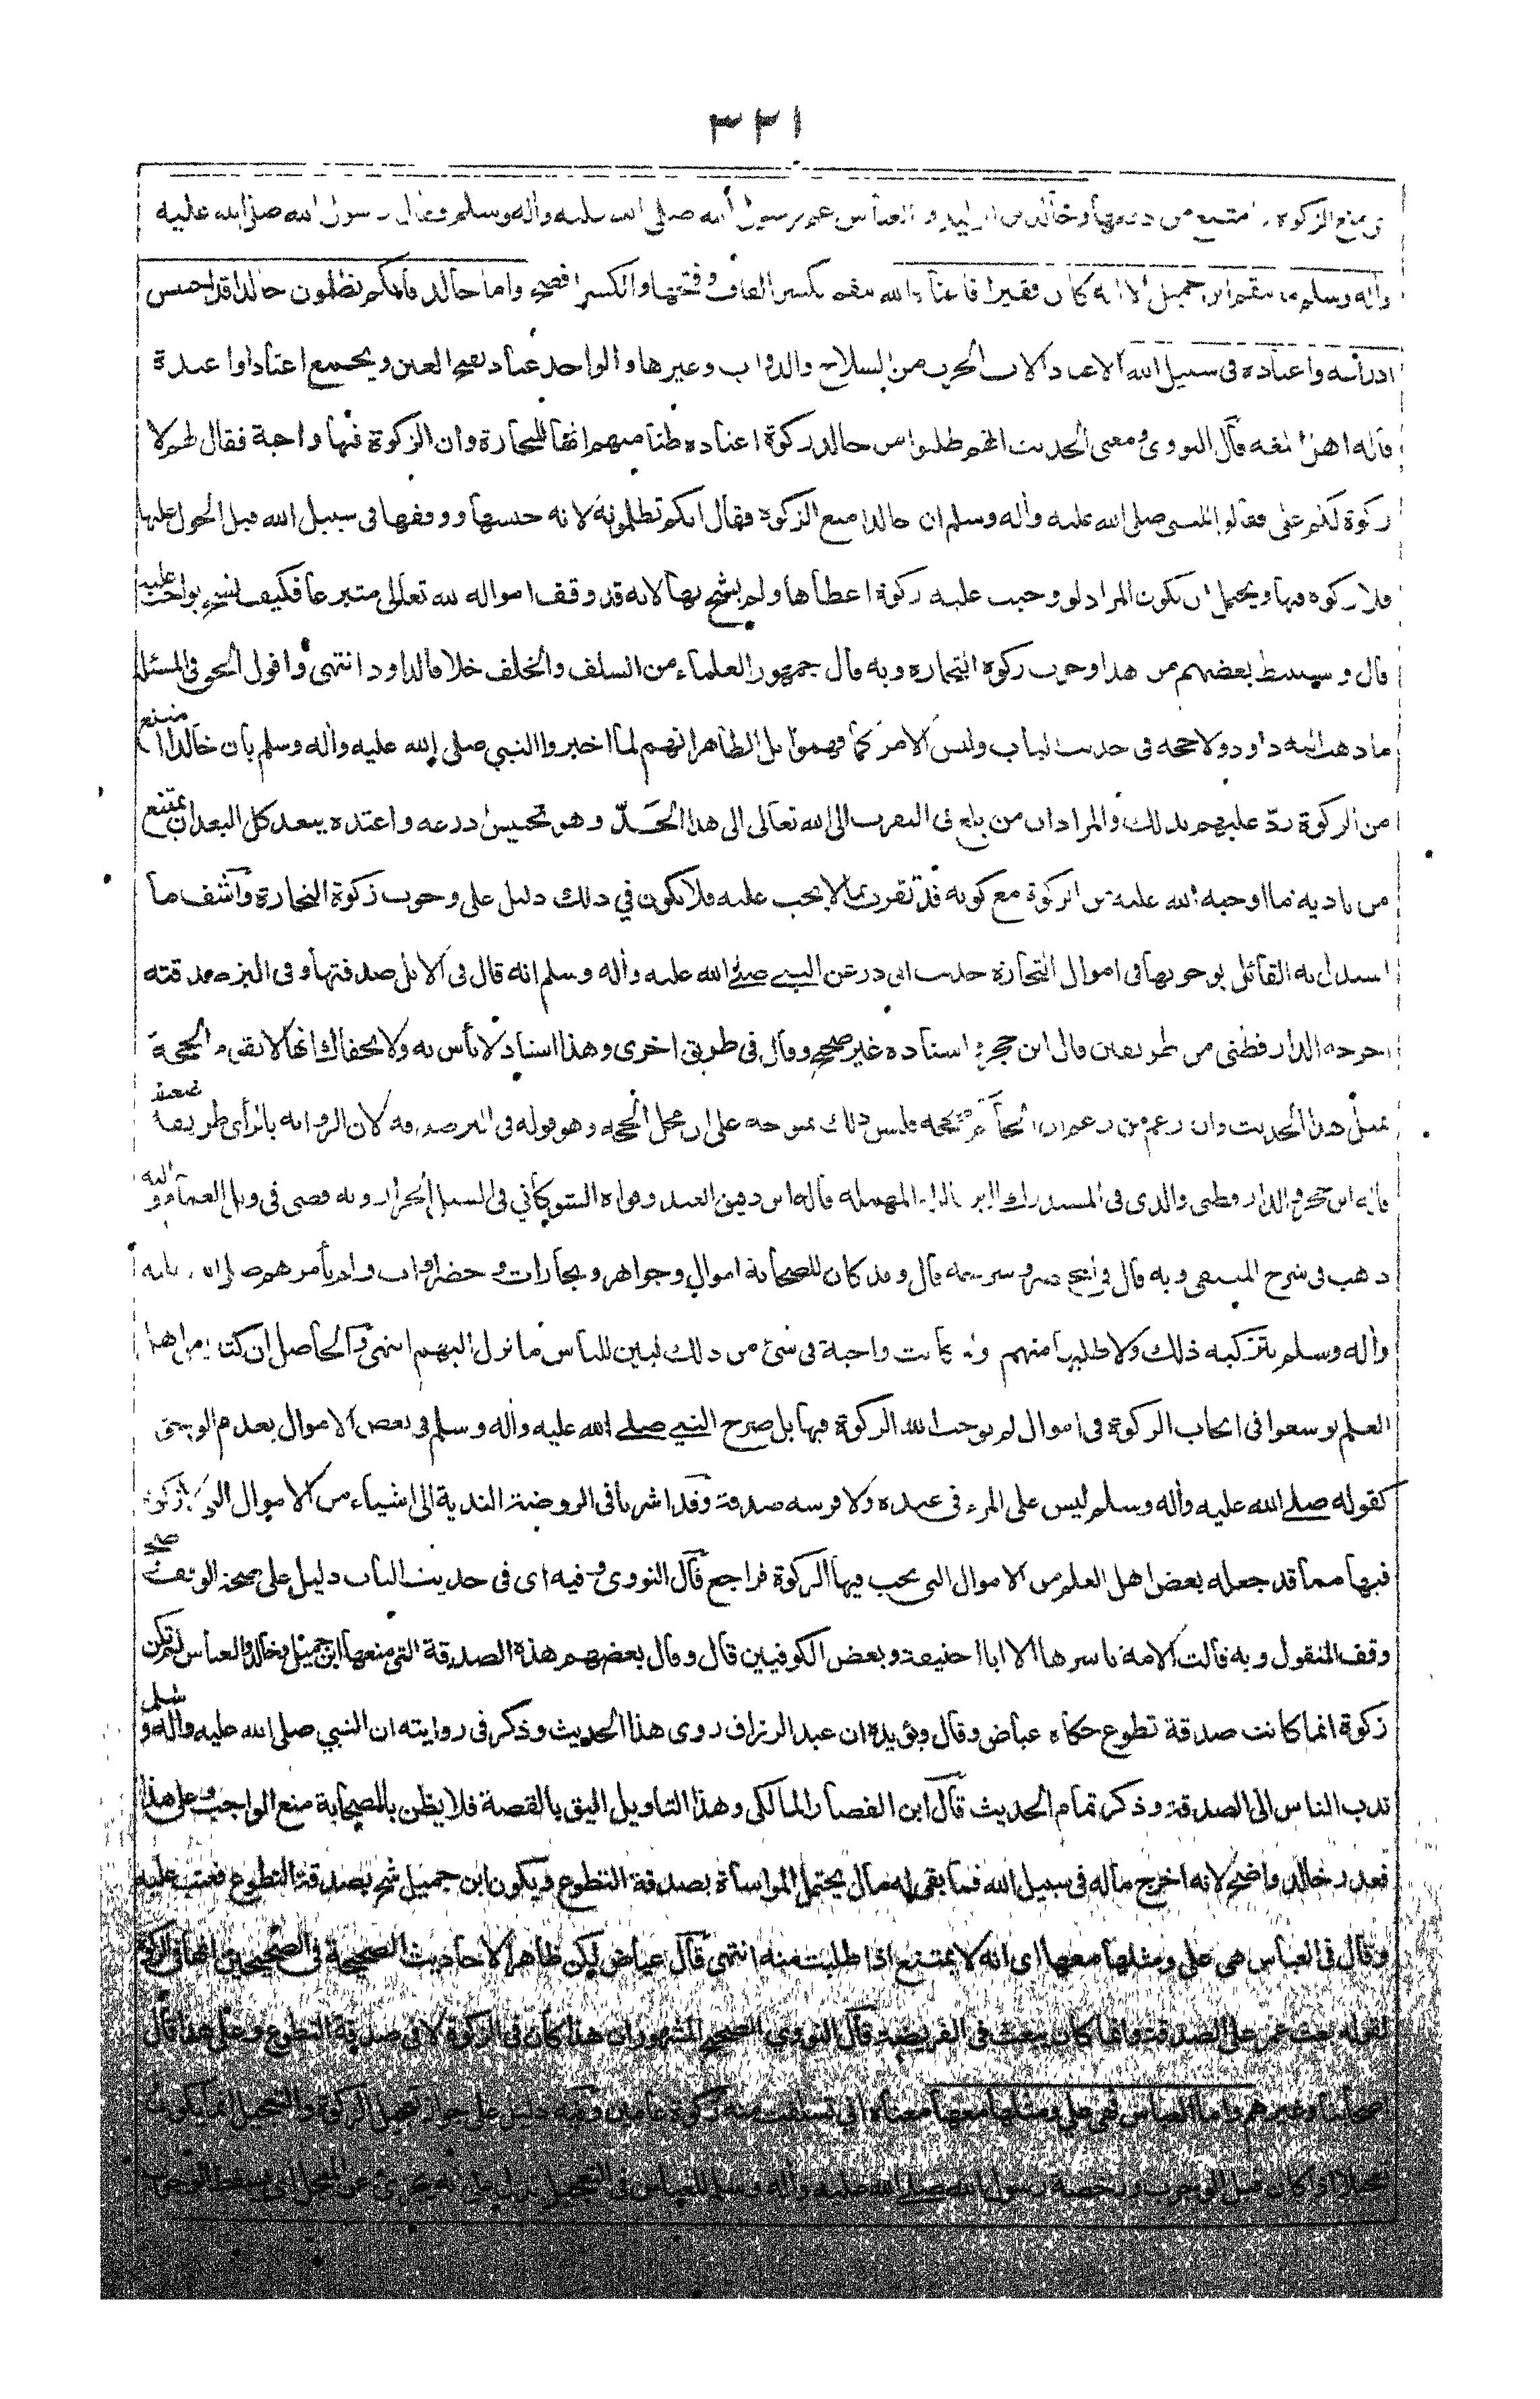 ٣٢١
منع الزكوة و امتنع من دفعها و خالد بن الوليد و العباس عم رسول الله صلى الله عليه وأله وسلم فقال رسول الله صلى الله عليه
وأله وسلم ما ينقم ابن جميل الا انه كان فقيرا فاغناه الله ينقم بكسر القاف و فتحها والكسر افصح واما خالد فانكم تظلمون خالدا قد احتبس
ادراعه واعتاده فى سبيل الله الاعتاد الات الحرب من السلاح والدواب وغيرها والواحد عتاد بفتح العين ويجمع اعتادا واعتدة
قاله اهل اللغه قال النووى ومعنى الحديث انهم طلبوا من خالد زكوة اعتاده ظنا منهم انها للتجارة وان الزكوة فيها واجبة فقال لهم لا
زكوة لكم على فقالوا للنبى صلى الله عليه وأله وسلم ان خالدا منع الزكوة فقال انكم تظلمونه لانه حبسها ووقفها فى سبيل الله قبل الحول عليها
فلا زكوة فيها ويحتمل ان يكون المراد لو وجبت عليه زكوة اعطاها ولم يشح بها لانه قد وقف امواله لله تعالى متبرعا فكيف يشح بواجب عليه
قال و استنبط بعضهم من هذا وجوب زكوة التجارة وبه قال جمهور العلماء من السلف والخلف خلافا لداود انتهى واقول الحق فى المسئلة
ما ذهب اليه داود ولا حجة فى حديث الباب وليس الامر كما فهموا بل الظاهر انهم لما اخبروا النبي صلى الله عليه وأله وسلم بأن خالدا امتنع
من الزكوة ردّ عليهم بذلك والمراد ان من بلغ فى التقرب الى الله تعالى الى هذا الحدّ وهو تحبيس درعه واعتده يبعد كل البعد ان يمتنع
من تادية ما اوجبه الله عليه من الزكوة مع كونه قد تقرب بما لا يجب عليه فلا يكون في ذلك دليل على وجوب زكوة التجارة واشف ما
استدل به القائل بوجوبها فى اموال التجارة حديث ابى ذر عن النبي صلى الله عليه وأله وسلم انه قال فى الابل صدقتها وفى البز صدقته
اخرجه الدارقطنى من طريقين قال ابن حجر اسناده غير صحيح وقال فى طريق اخرى وهذا اسناد لا بأس به ولا يخفاك انها لا تقوم الحجة
بمثل هذا الحديث وان زعم من زعم ان الحاكم صححه فليس ذلك بموجه على ان محل الحجة وهو قوله فى البز صدقته لان الرواية بالزأى طريقة ضعفه
قاله ابن حجر والدارقطنى والذى فى المستدرك البر بالراء المهملة قاله ابن دقيق العيد وقواه الشوكاني فى السيل الجرار وبه قضى فى وبل الغمام واليه
ذهب فى شرح المنتقى وبه قال فى قال وقد كان للصحابة اموال وجواهر وتجارات وحضراوات ولم يأمرهم صلى الله عليه
وأله وسلم بتزكية ذلك ولا طلبها منهم ولو كانت واجبة فى شئ من ذلك لبين للناس ما نزل اليهم انتهى والحاصل ان كثيرا من اهل
العلم توسعوا فى ايجاب الزكوة فى اموال لم يوجب الله الزكوة فيها بل صرح النبي صلى الله عليه وأله وسلم فى بعض الاموال بعدم الوجوب
كقوله صلى الله عليه وأله وسلم ليس على المرء فى عبده ولا فرسه صدقة وقد اشرنا فى الروضة الندية الى اشياء من الاموال التى لا زكوة
فيها مما قد جعله بعض اهل العلم من الاموال التى يجب فيها الزكوة فراجع قال النووى وفيه اى فى حديث الباب دليل على صحة الوقف وصحة
وقف المنقول وبه قالت الامة باسرها الا ابا حنيفة وبعض الكوفيين قال وقال بعضهم هذه الصدقة التى منعها ابن جميل وخالد والعباس لم تكن
زكوة انما كانت صدقة تطوع حكاه عياض وقال ويؤيده ان عبد الرزاق روى هذا الحديث وذكر فى روايته ان النبي صلى الله عليه وأله وسلم
ندب الناس الى الصدقة وذكر تمام الحديث قال ابن القصار المالكى وهذا التاويل اليق بالقصة فلا يظن بالصحابة منع الواجب وعلى هذا
فعذر خالد واضح لانه اخرج ماله فى سبيل الله فما بقى له مال يحتمل المواساة بصدقة التطوع ويكون ابن جميل شح بصدقة التطوع فعتب عليه
وقال فى العباس هى على ومثلها معها اى انه لا يمتنع اذا طلبت منه انتهى قال عياض لكن ظاهر الاحاديث الصحيحة فى الصحيحين انها فى الزكوة
لقوله بعث عمر على الصدقة وانما كان يبعث فى الفريضة قال النووى الصحيح المشهور ان هذا كان فى الزكوة لا فى صدقة التطوع وعلى هذا قال
اصحابنا وغيرهم واما العباس فهى علي ومثلها معها معناه انى تسلفت منه زكوة عامين وفيه دليل على جواز تعجيل الزكوة والتعجيل انما يكون
تعجيلا اذا كان قبل الوجوب ورخصة رسول الله صلى الله عليه وأله وسلم للعباس فى التعجيل